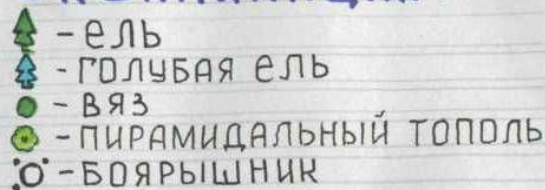 - ель
- ГОЛУБАЯ ель
- ВЯЗ
- ПИРАМИДАЛЬНЫЙ ТОПОЛЬ
- БОЯРЫШНИК